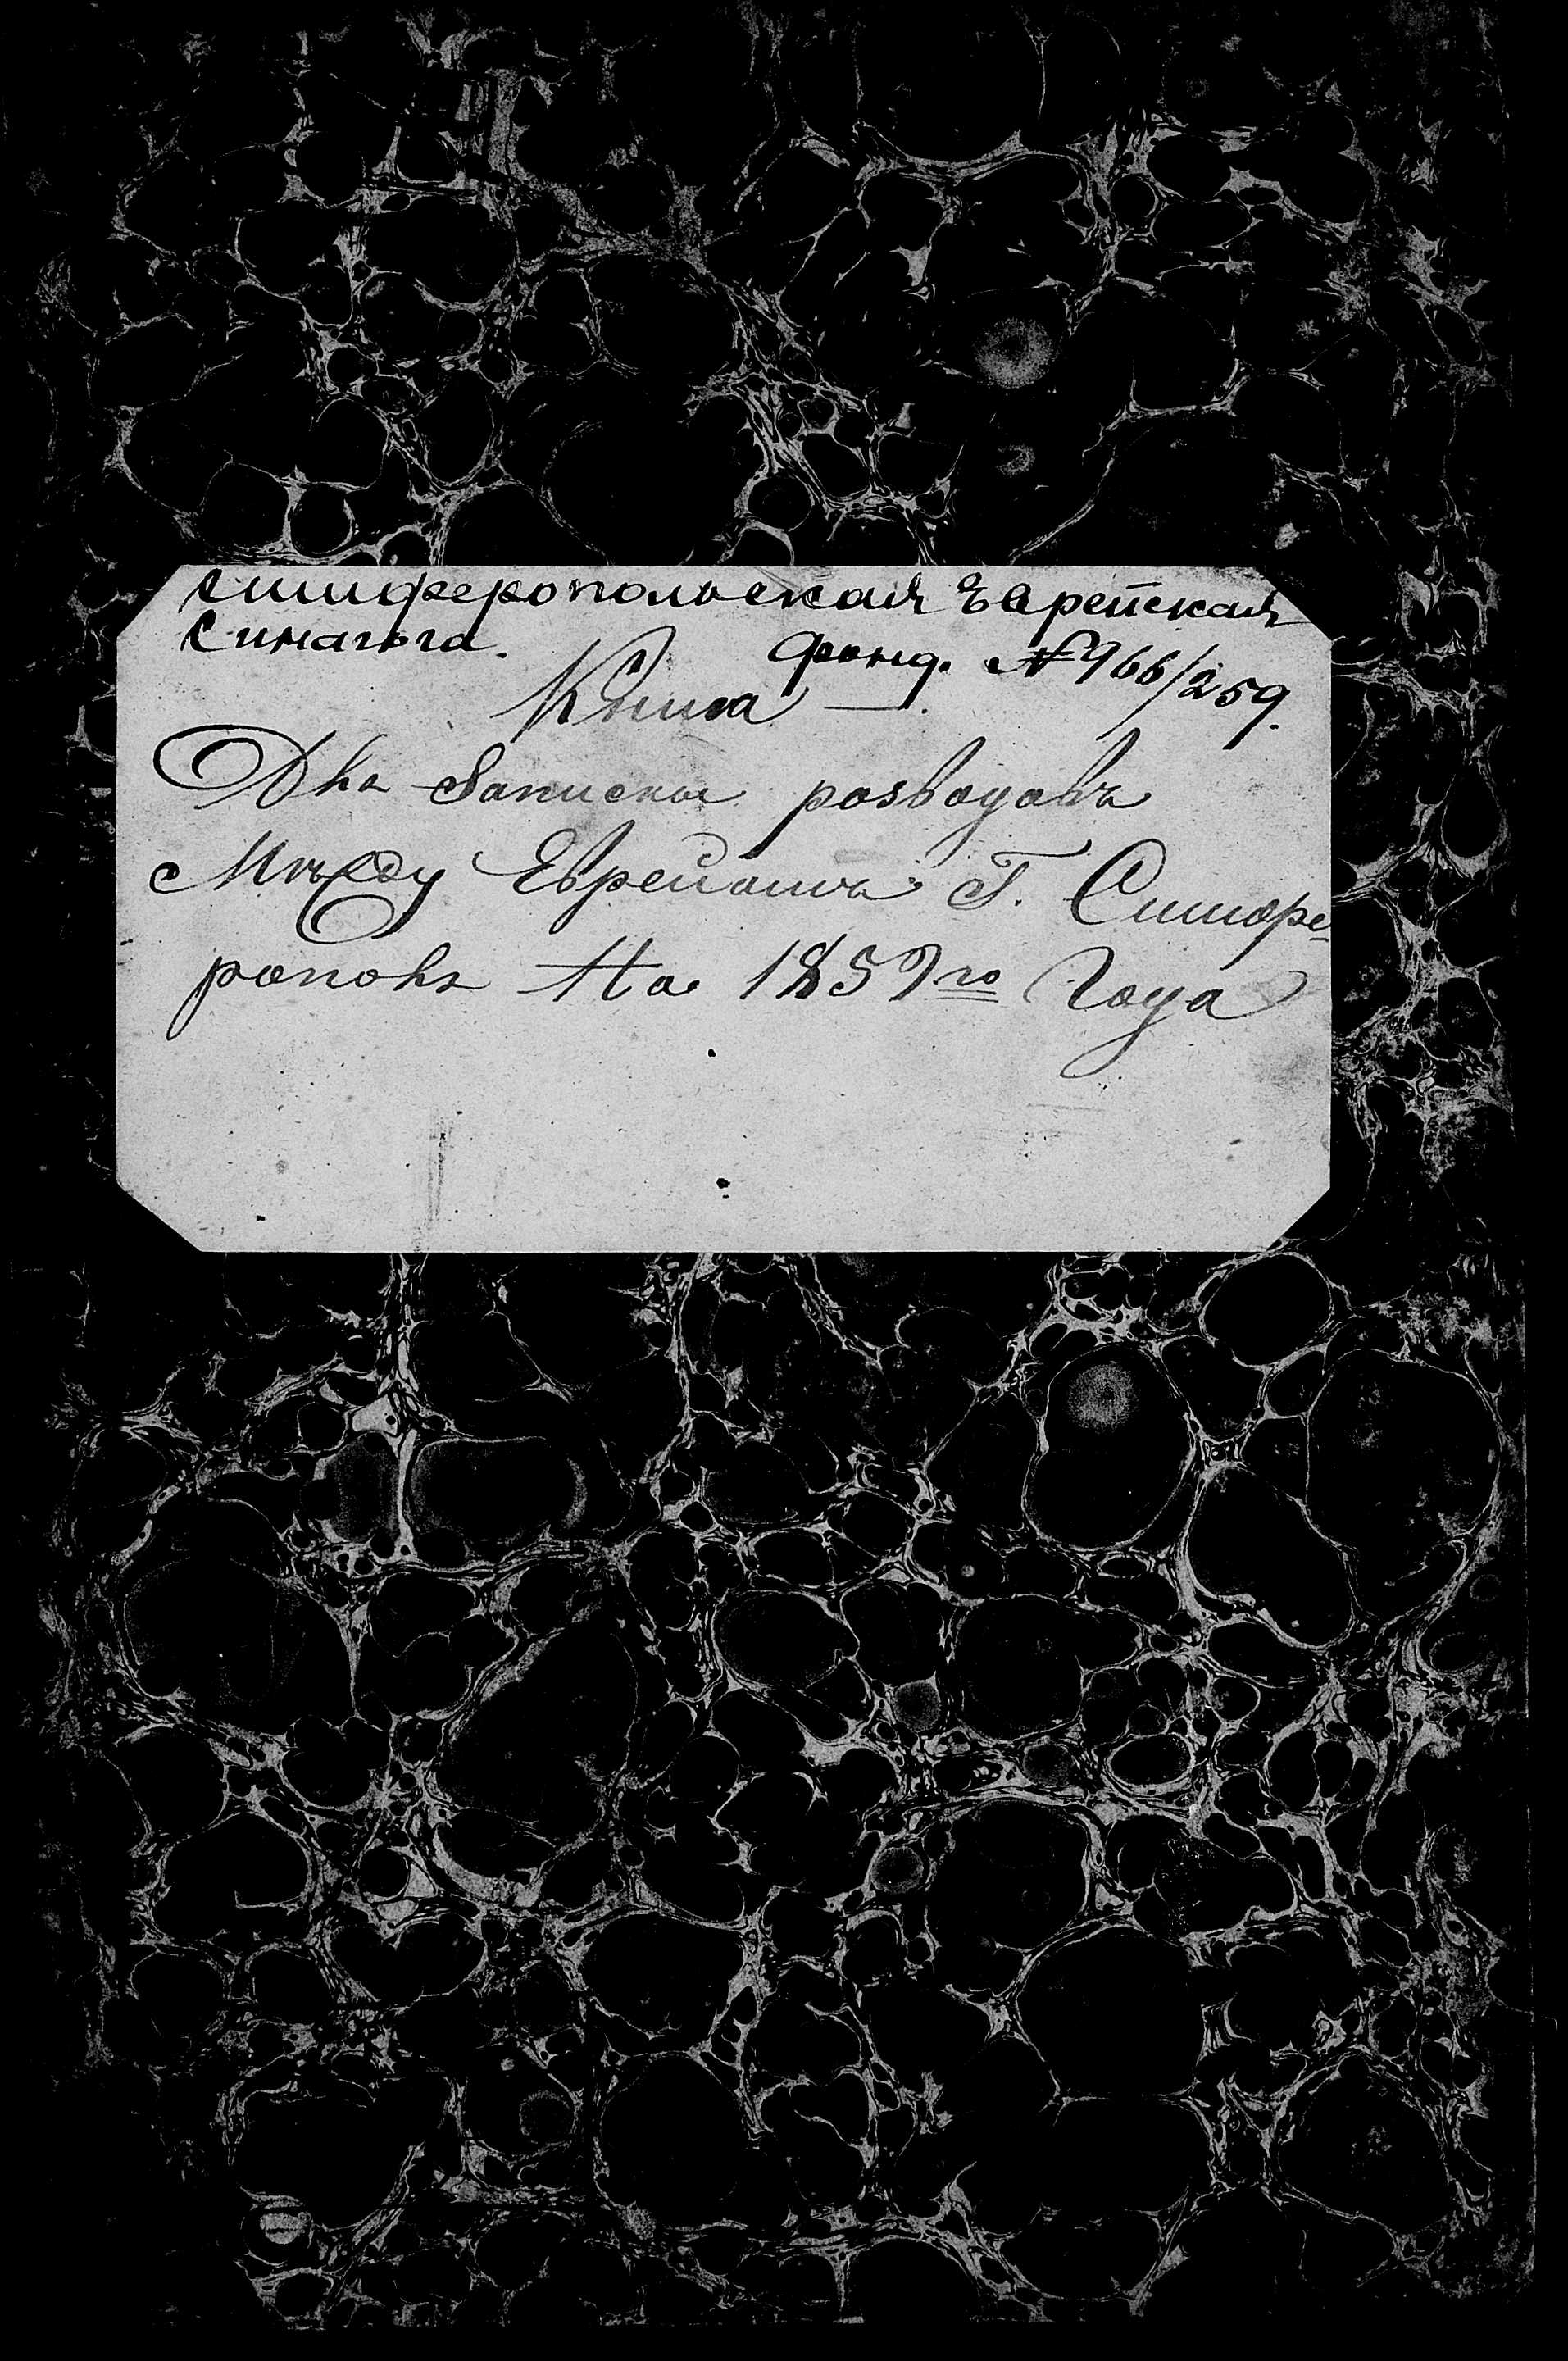 Симферопольская Еврейская
Синагога. Фонд. № 966/259.
Книга —.
Дла Записки розводавъ
Между Евреиами Г. Симфе-
рополѣ На 1859го Года